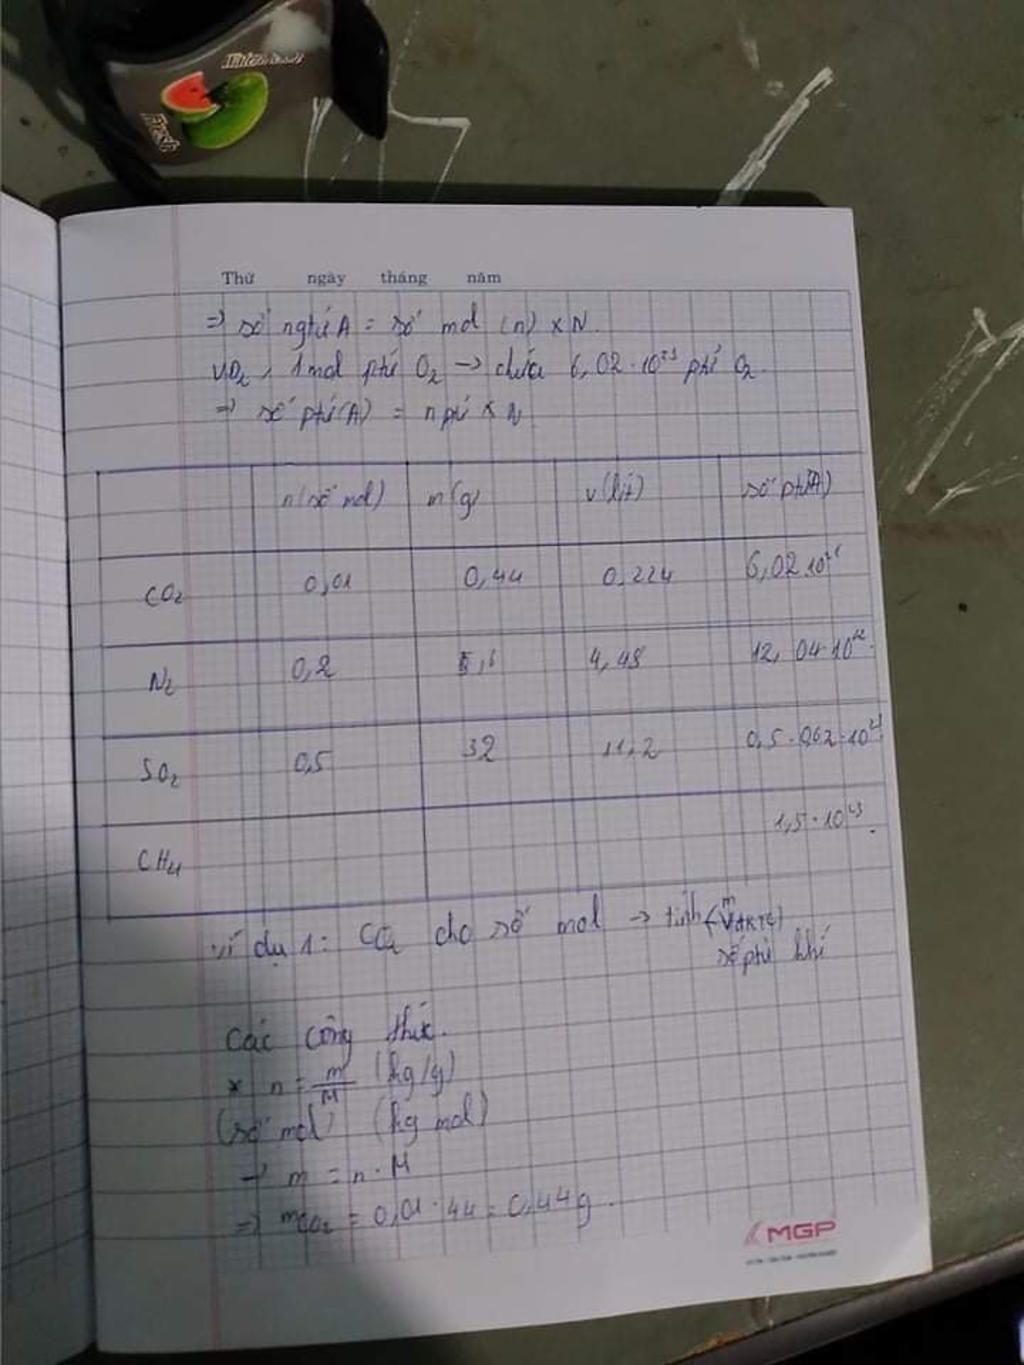 Fresh
Thứ ngày tháng năm
=> số ngtử A = số mol (n) x N.
VD2, 1 mol phtử O2 -> chứa 6,02.10^23 phtử O2.
=> số phtử(A) = n ptử x N
n(số mol) m(g) v(lít) số phtử(A)
CO2 0,01 0,44 0,224 6,02.10^21
N2 0,2 5,6 4,48 12,04.10^22.
SO2 0,5 32 11,2 0,5.0,62.10^23
CH4 1,5.10^23.
Ví dụ 1: CO2 cho số mol -> tính (m VĐKTC)
số phtử khí
Các công thức.
* n = m/M (kg/g)
(số mol) (kg mol)
-> m = n.M
=> mCO2 = 0,01.44 = 0,44g.
MGP